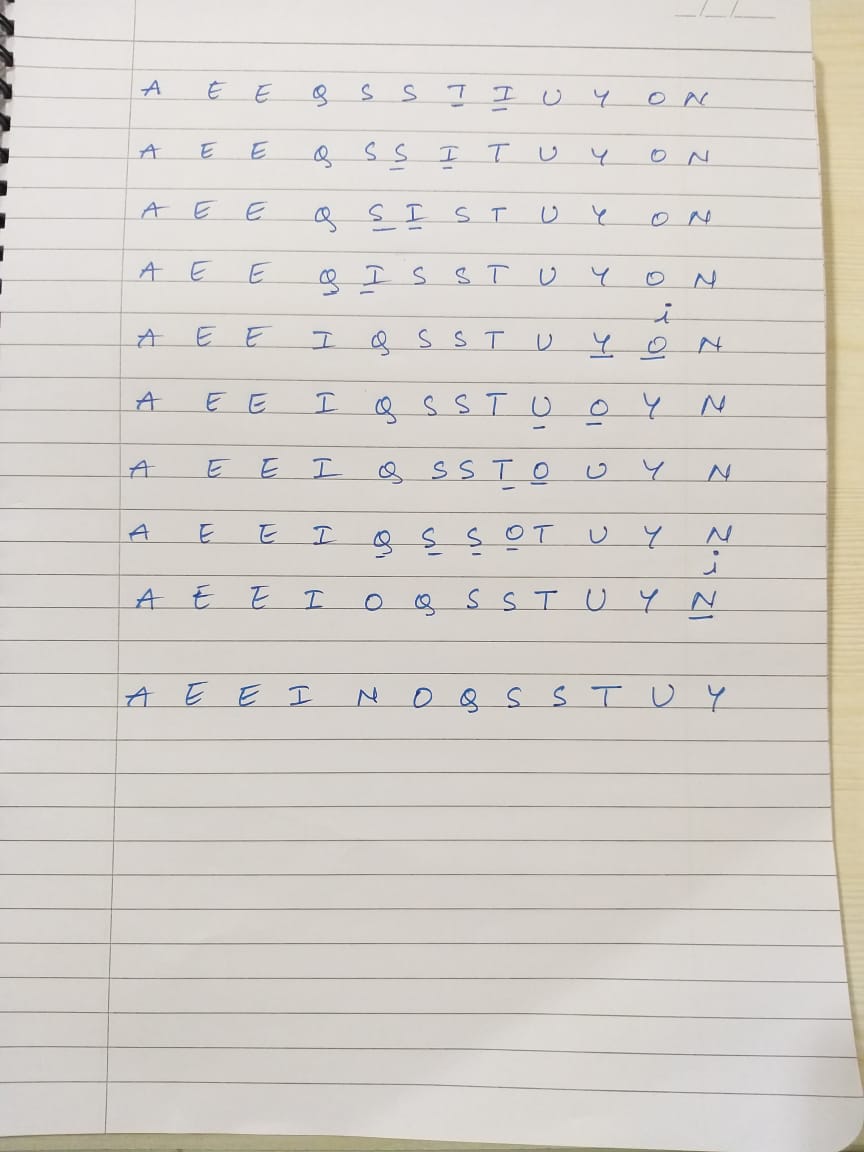 A E E Q S S T I U Y O N
A E E Q S S I T U Y O N
A E E Q S I S T U Y O N
A E E Q I S S T U Y O N
i
A E E I Q S S T U Y O N
A E E I Q S S T U O Y N
A E E I Q S S T O U Y N
A E E I Q S S O T U Y N
i
A E E I O Q S S T U Y N
A E E I N O Q S S T U Y